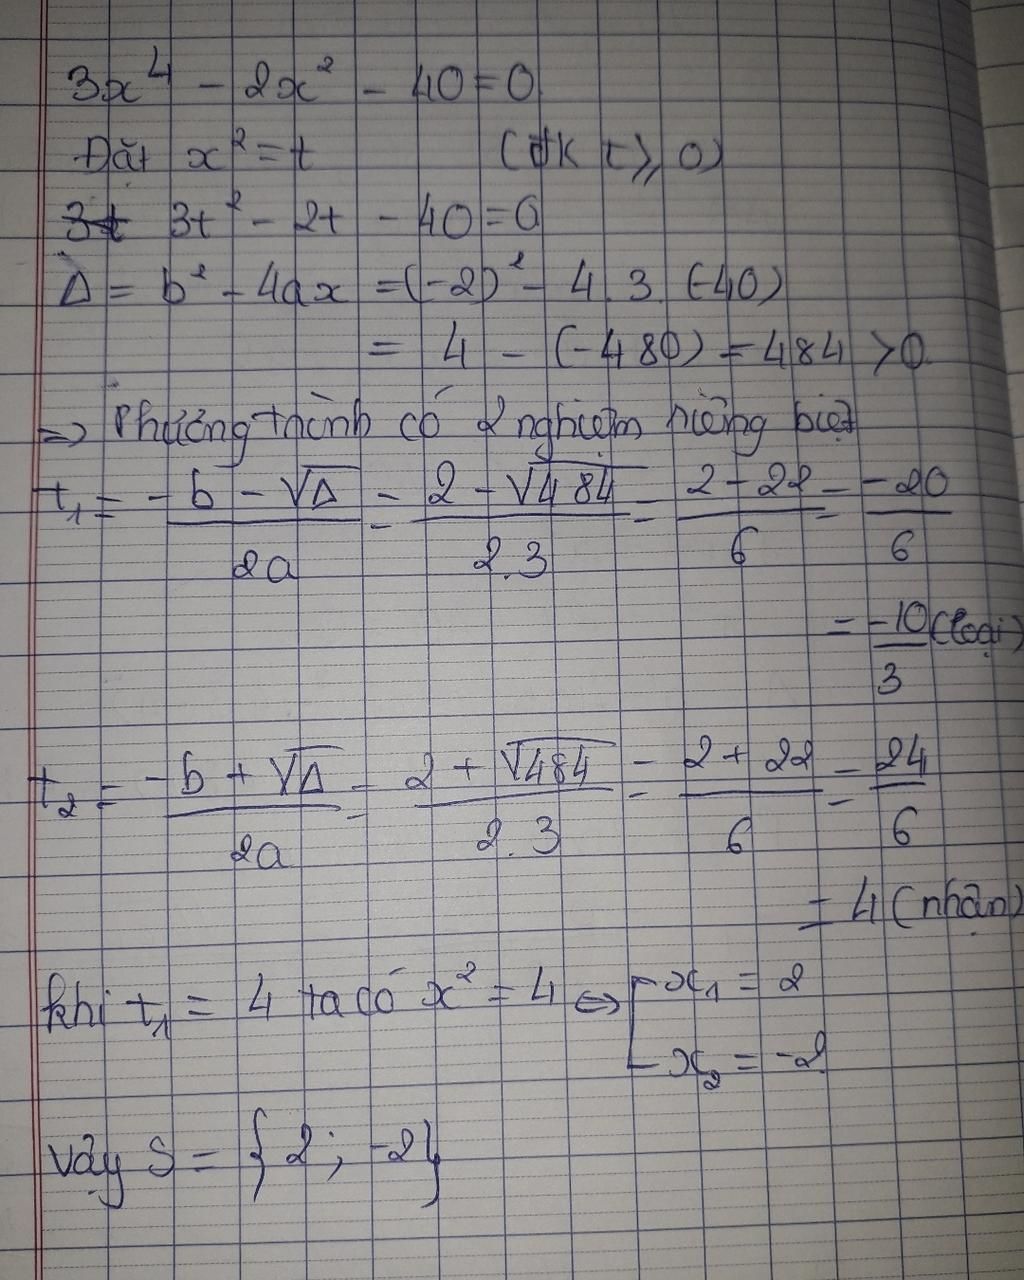 3x⁴ - 2x² - 40 = 0
Đặt x² = t (đk t ⩾ 0)
3t² - 2t - 40 = 0
Δ = b² - 4ax = (-2)² - 4.3.(-40)
= 4 - (-480) = 484 > 0.
=> Phương trình có 2 nghiệm riêng biệt
t₁ = (-b - √Δ)/2a = (2 - √484)/2.3 = (2 - 22)/6 = -20/6
= -10/3 (loại)
t₂ = (-b + √Δ)/2a = (2 + √484)/2.3 = (2 + 22)/6 = 24/6
= 4 (nhận)
khi t₁ = 4 ta có x² = 4 ⇔ [x₁ = 2
x₂ = -2
vậy S = {2; -2}